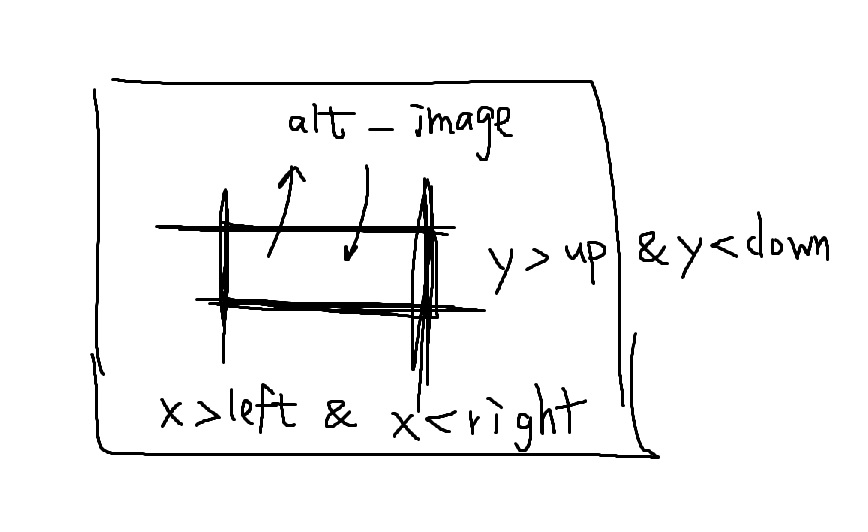 alt_image
y>up & y<down
x>left & x<right